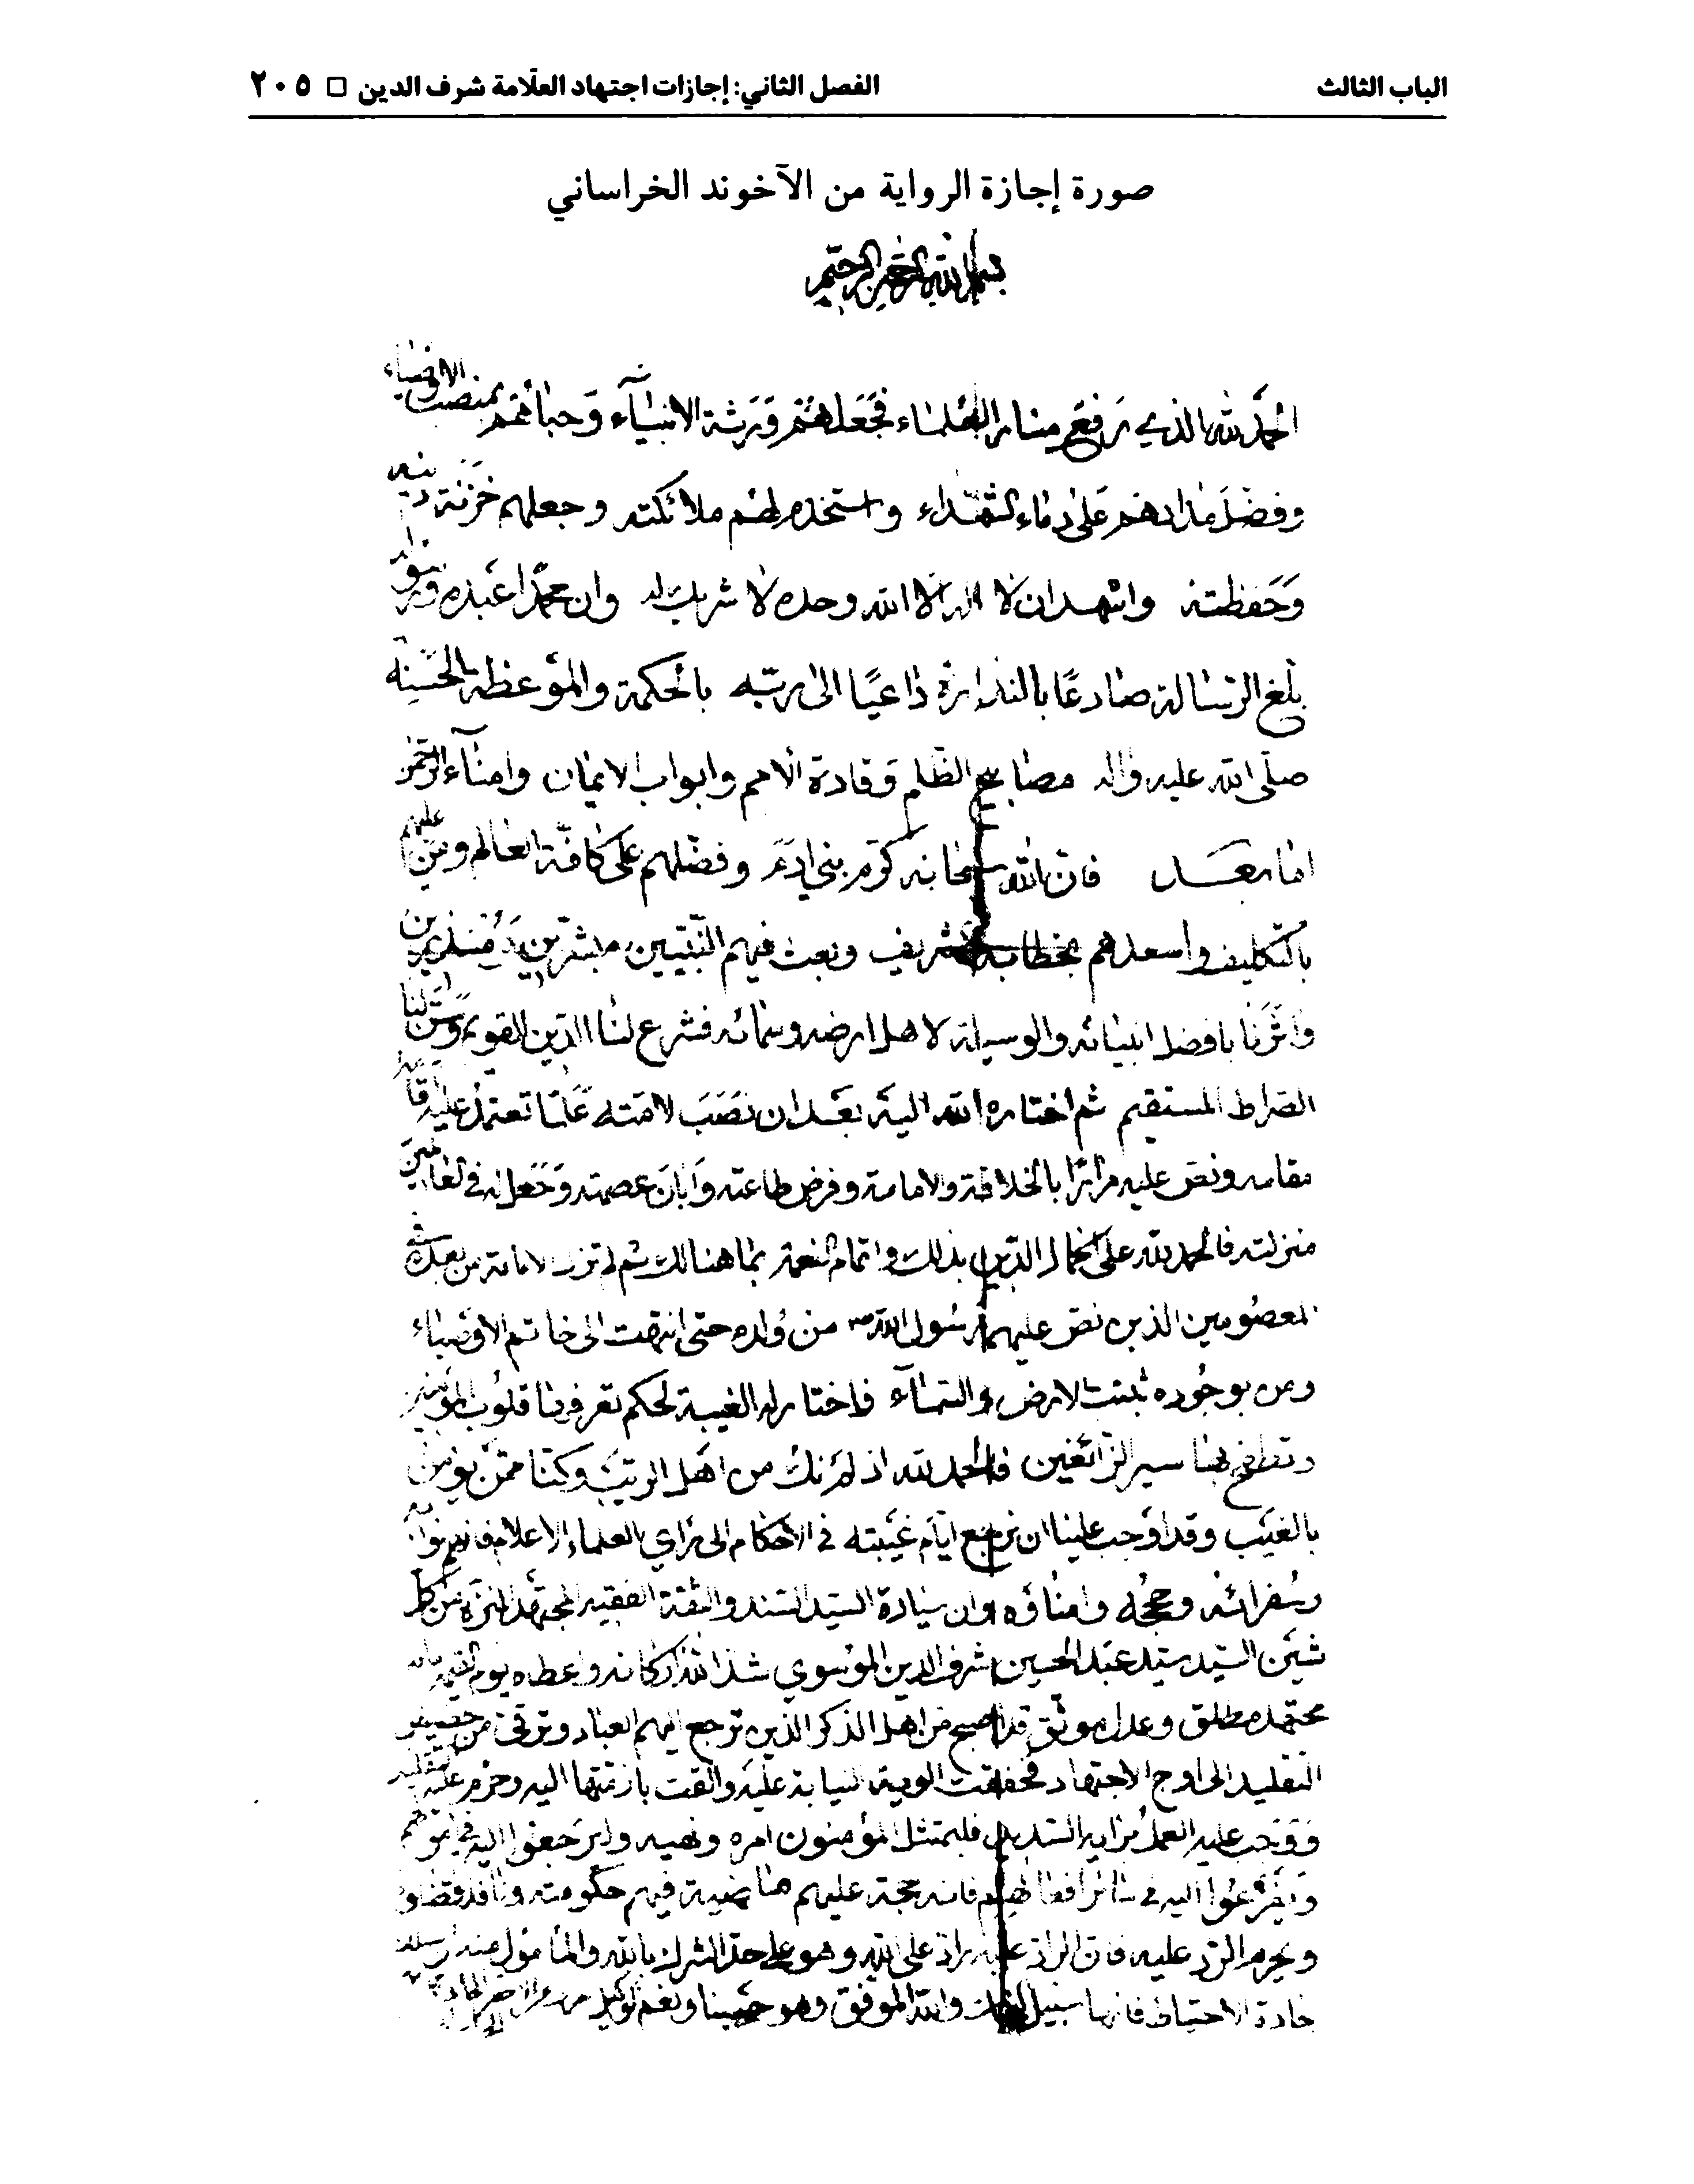 الباب الثالث الفصل الثاني: إجازات اجتهاد العلّامة شرف الدين □ ٢٠٥
صورة إجازة الرواية من الآخوند الخراساني
بسم الله الرحمن الرحيم
الحمد لله الذي رفع منار العلماء فجعلهم ورثة الانبياء وحباهم بمنصب الاوصياء
وفضل مدادهم على دماء الشهداء واستخدم لهم ملائكته وجعلهم خزنة دينه
وحفظته واشهد ان لا اله الا الله وحده لا شريك له وان محمدًا عبده ورسوله
بلغ الرسالة صادعًا بالنذارة داعيًا الى ربّه بالحكمة والموعظة الحسنة
صلّى الله عليه وآله مصابيح الظلم وقادة الامم وابواب الايمان وامناء الرحمن
اما بعد فان الله سبحانه كرّم بني ادم وفضّلهم على كافّة العالم ومنّ عليهم
بالتكليف واسعدهم بخطابه الشريف وبعث فيهم النبيّين مبشرين ومنذرين
وآثرنا بافضل انبيائه والوسيلة لاهل ارضه وسمائه فشرع لنا الدّين القويم وسنّ لنا
الصراط المستقيم ثم اختاره الله اليه بعد ان نصب لامته علمًا تعتمد عليه
مقامه ونص عليه مرارًا بالخلافة والامامة وفرض طاعته وابان عصمته وجعل له في العالمين
منزلته فالحمد لله على اكمال الدّين بذلك واتمام النعمة بما هنالك ثم لم تزل الامامة من بعده في
المعصومين الذين نص عليهم رسول الله ص من ولده حتى انتهت الى خاتم الاوصياء
ومن بوجوده ثبتت الارض والسماء فاختار له الغيبة لحكم تعرفها قلوب المؤمنين
بها سير الزائغين فالحمد لله اذ لم نك من اهل الريب وكنا ممّن يؤمن
بالغيب وقد اوجب علينا ان نرجع ايّام غيبته في الاحكام الى رأي العلماء الاعلام فانهم نوابه
وسفرائه وحججه وامناؤه وان سيادة السيّد السند والثقة الفقيه المجتهد المنزّه من كل
شين السيّد سيّد عبد الحسين شرف الدين الموسوي شدّ الله اركانه واعطاه يوم القيمة
مجتهد مطلق وعدل موثق قد اصبح من اهل الذكر الذين ترجع اليهم العباد وترقى من حضيض
التقليد الى اوج الاجتهاد فخفقت الوية النيابة عليه والقت بازمّتها اليه وحرم عليه التقليد
ووجب عليه العمل برأيه السديد فليمتثل المؤمنون امره ونهيه وليرجعوا اليه في
اليه في سائر فانه حجة عليهم ماضية فيهم حكومته ونافذ قضاؤه
ويحرم الرّد عليه فان الراد عليه راد على الله وهو على حدّ الشرك بالله والمأمول منه
جادة الاحتياط فانها سبيل والله الموفق وهو حسبنا ونعم الوكيل